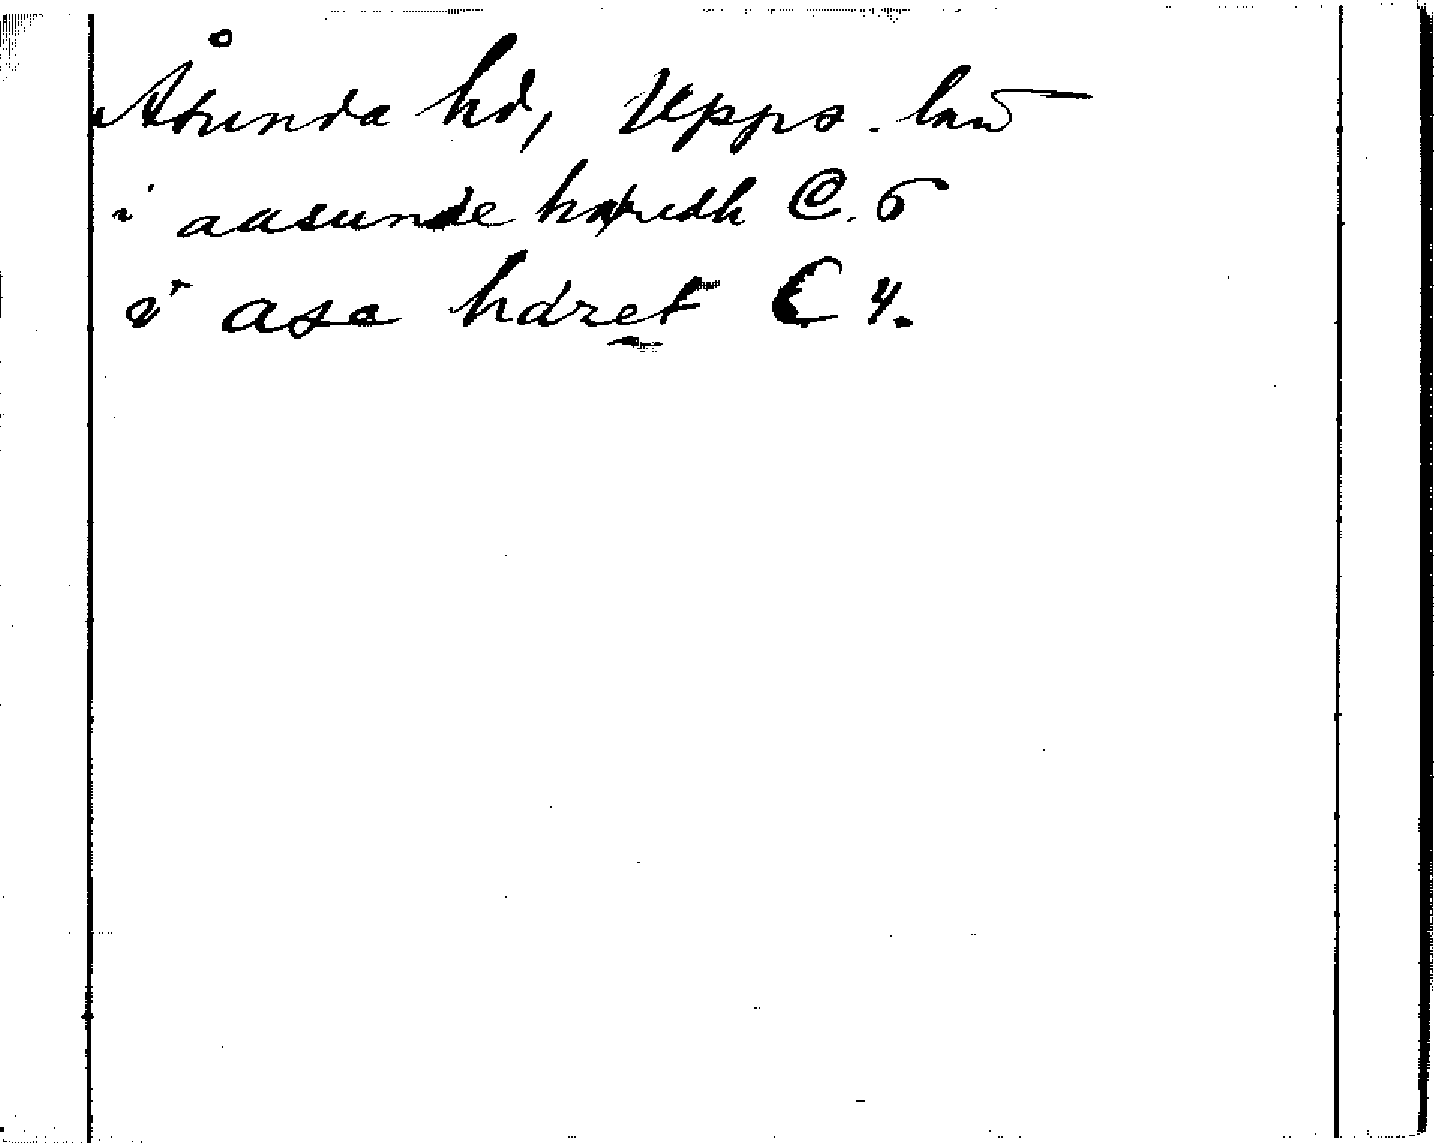 Åsunda hd, Upps. län
i aasunde hæredh C. 6
i asa hdret C 4.